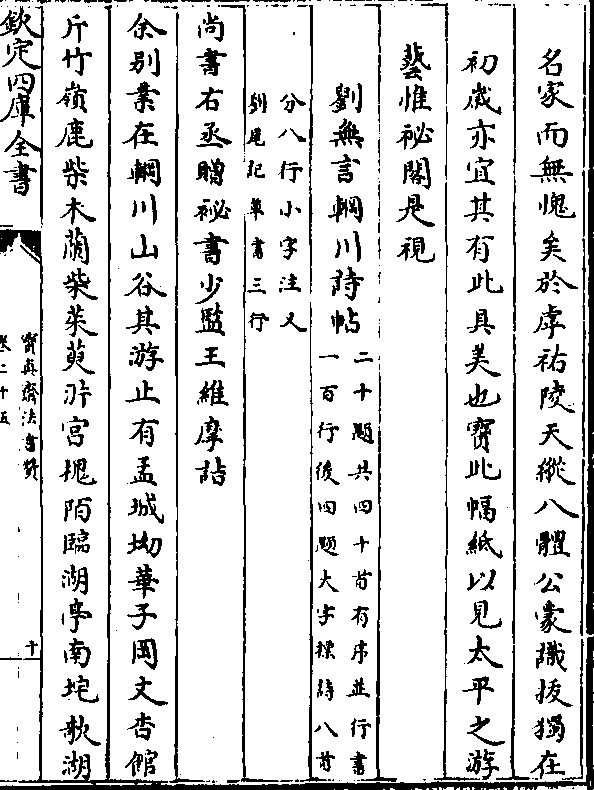 名家而無愧矣於虖祐陵天縱八體公蒙識拔獨在
初歲亦宜其有此具美也寶此幅紙以見太平之游
藝惟祕閣是視
劉無言輞川詩帖
二十題共四十首有序並行書
一百行後四題大字標詩八首
分八行小字注又
別尾記草書三行
尚書右丞贈祕書少監王維摩詰
余别業在輞川山谷其游止有孟城坳華子岡文杏館
斤竹嶺鹿柴木蘭柴茱萸沜宮槐陌臨湖亭南垞欹湖
欽定四庫全書
寶真齋法書贊
卷二十五
十